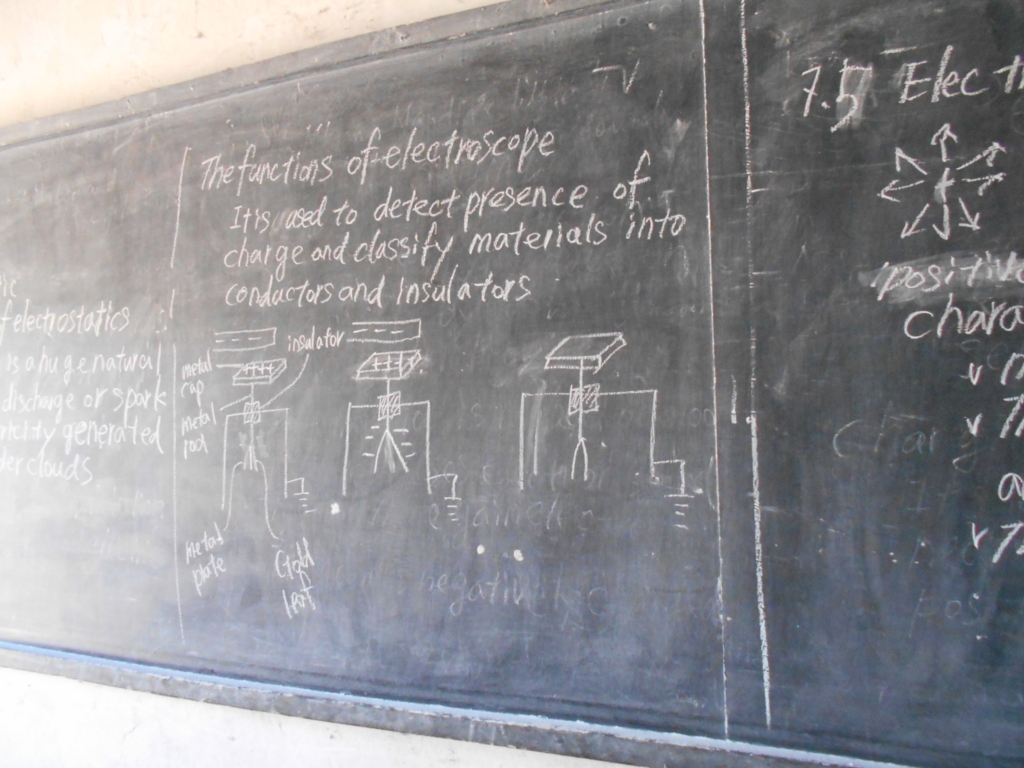 f electrostatics
is a huge natural
discharge or spark
ricity generated
der clouds
The functions of electroscope
It is used to detect presence of
charge and classify materials into
conductors and Insulators
insulator
metal cap
metal rod
metal plate
Gold leaf
7.5 Elect
positive
chara